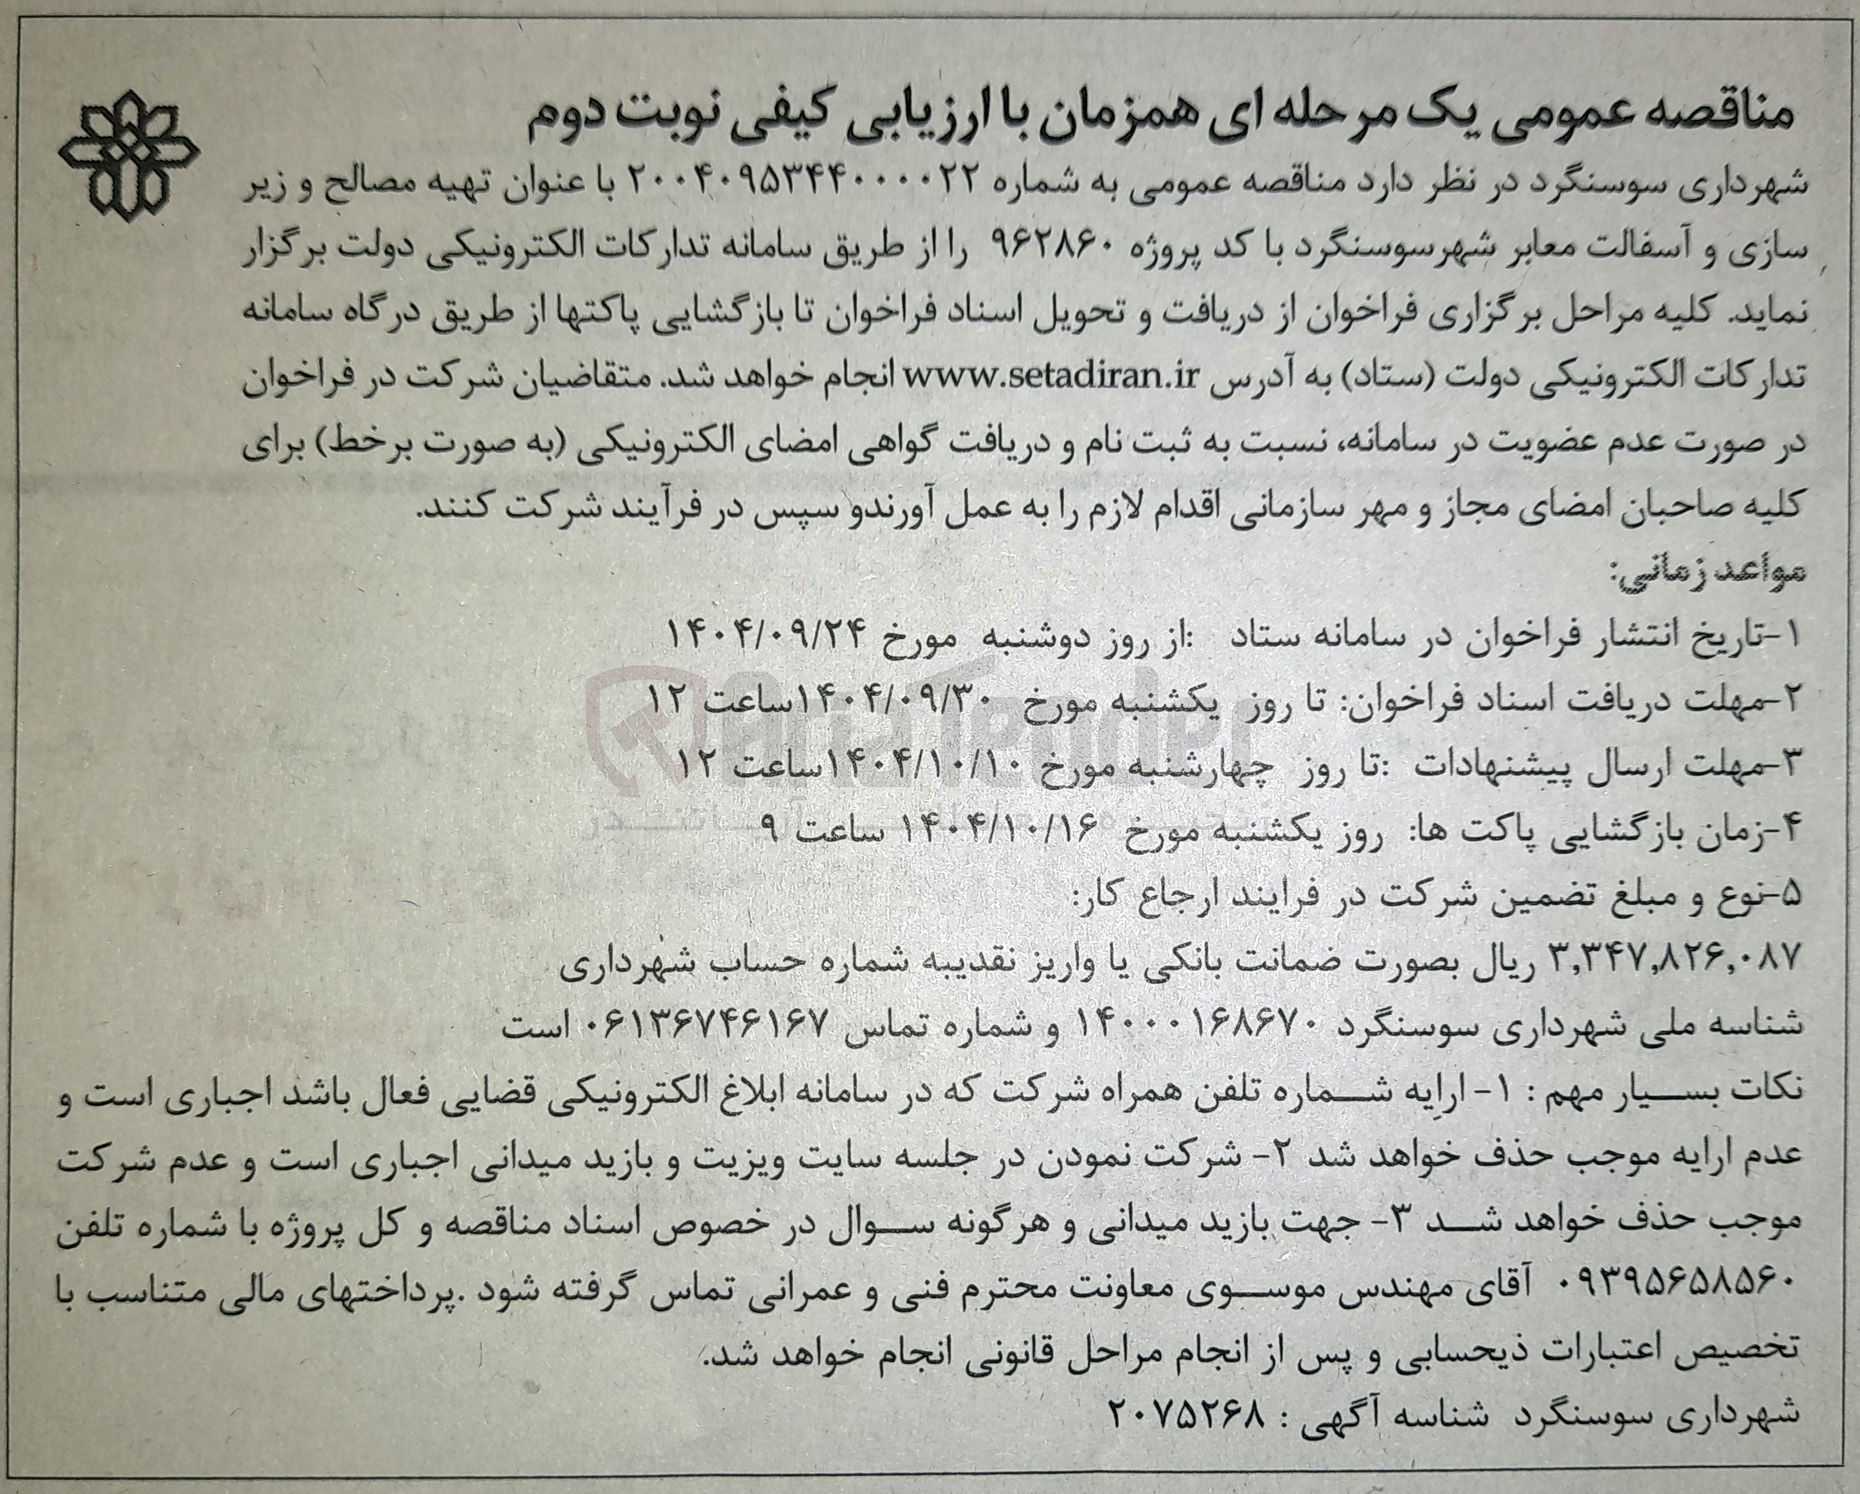 مناقصه عمومی یک مرحله ای همزمان با ارزیابی کیفی نوبت دوم
شهرداری سوسنگرد در نظر دارد مناقصه عمومی به شماره ۲۰۰۴۰۹۵۳۴۴۰۰۰۰۲۲ با عنوان تهیه مصالح و زیر
سازی و آسفالت معابر شهرسوسنگرد با کد پروژه ۹۶۲۸۶۰ را از طریق سامانه تدارکات الکترونیکی دولت برگزار
نماید. کلیه مراحل برگزاری فراخوان از دریافت و تحویل اسناد فراخوان تا بازگشایی پاکتها از طریق درگاه سامانه
تدارکات الکترونیکی دولت (ستاد) به آدرس www.setadiran.ir انجام خواهد شد. متقاضیان شرکت در فراخوان
در صورت عدم عضویت در سامانه، نسبت به ثبت نام و دریافت گواهی امضای الکترونیکی (به صورت برخط) برای
کلیه صاحبان امضای مجاز و مهر سازمانی اقدام لازم را به عمل آورندو سپس در فرآیند شرکت کنند.
مواعد زمانی:
۱-تاریخ انتشار فراخوان در سامانه ستاد :از روز دوشنبه مورخ ۱۴۰۴/۰۹/۲۴
۲-مهلت دریافت اسناد فراخوان: تا روز یکشنبه مورخ ۱۴۰۴/۰۹/۳۰ساعت ۱۲
۳-مهلت ارسال پیشنهادات :تا روز چهارشنبه مورخ ۱۴۰۴/۱۰/۱۰ساعت ۱۲
۴-زمان بازگشایی پاکت ها: روز یکشنبه مورخ ۱۴۰۴/۱۰/۱۶ ساعت ۹
۵-نوع و مبلغ تضمین شرکت در فرایند ارجاع کار:
۳,۳۴۷,۸۲۶,۰۸۷ ریال بصورت ضمانت بانکی یا واریز نقدیبه شماره حساب شهرداری
شناسه ملی شهرداری سوسنگرد ۱۴۰۰۰۱۶۸۶۷۰ و شماره تماس ۰۶۱۳۶۷۴۶۱۶۷ است
نکات بسیار مهم : ۱- ارایه شماره تلفن همراه شرکت که در سامانه ابلاغ الکترونیکی قضایی فعال باشد اجباری است و
عدم ارایه موجب حذف خواهد شد ۲- شرکت نمودن در جلسه سایت ویزیت و بازید میدانی اجباری است و عدم شرکت
موجب حذف خواهد شد ۳- جهت بازید میدانی و هرگونه سوال در خصوص اسناد مناقصه و کل پروژه با شماره تلفن
۰۹۳۹۵۶۵۸۵۶۰ آقای مهندس موسوی معاونت محترم فنی و عمرانی تماس گرفته شود .پرداختهای مالی متناسب با
تخصیص اعتبارات ذیحسابی و پس از انجام مراحل قانونی انجام خواهد شد.
شهرداری سوسنگرد شناسه آگهی : ۲۰۷۵۲۶۸